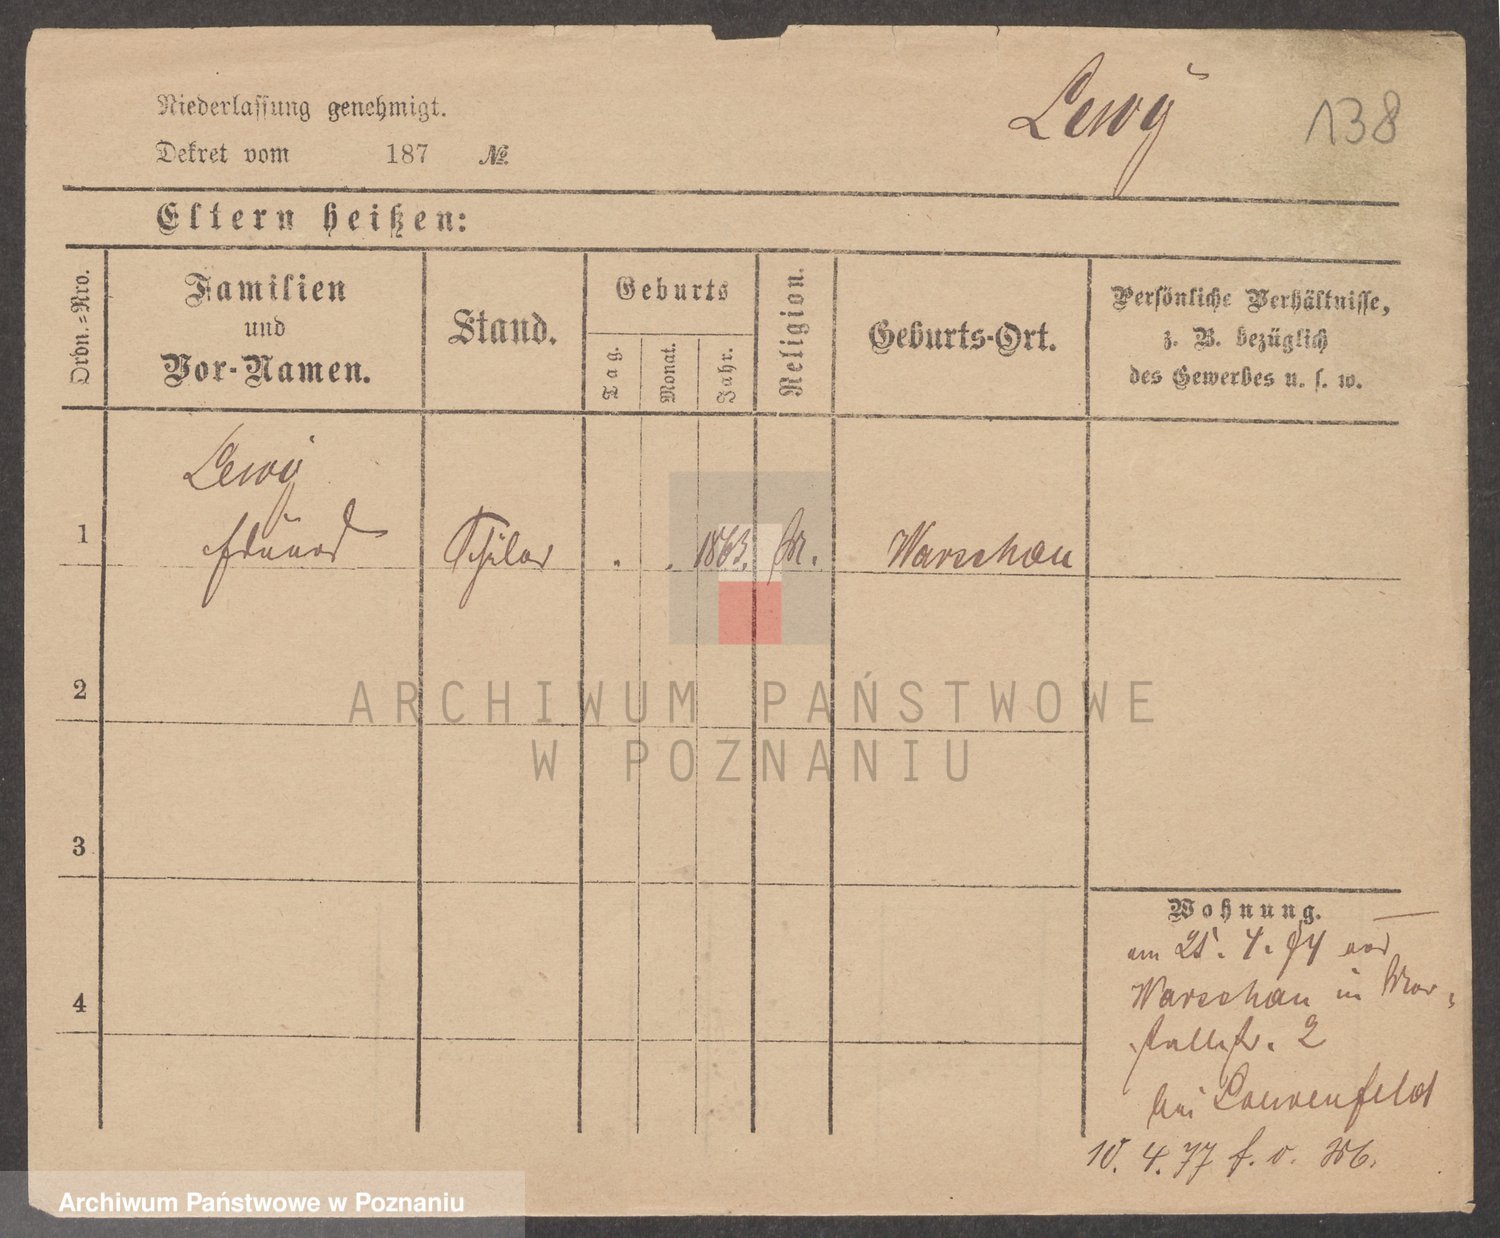 Niederlassung genehmigt.
Lewÿ
138
Dekret vom 187 №.
Eltern heißen:
Ordn.-Nro.
Familien
und
Vor-Namen.
Stand.
Geburts
Tag.
Monat.
Jahr.
Religion.
Geburts-Ort.
Persönliche Verhältnisse,
z. B. bezüglich
des Gewerbes u. s. w.
Lewÿ
1 Eduard Schüler . . 1863. M. Warschau
2
3
4
Wohnung.
am 25. 4. 74 aus
Warschau in
2
bei Loewenfeld
10. 4. 77 f. v.
ARCHIWUM PAŃSTWOWE
W POZNANIU
Archiwum Państwowe w Poznaniu